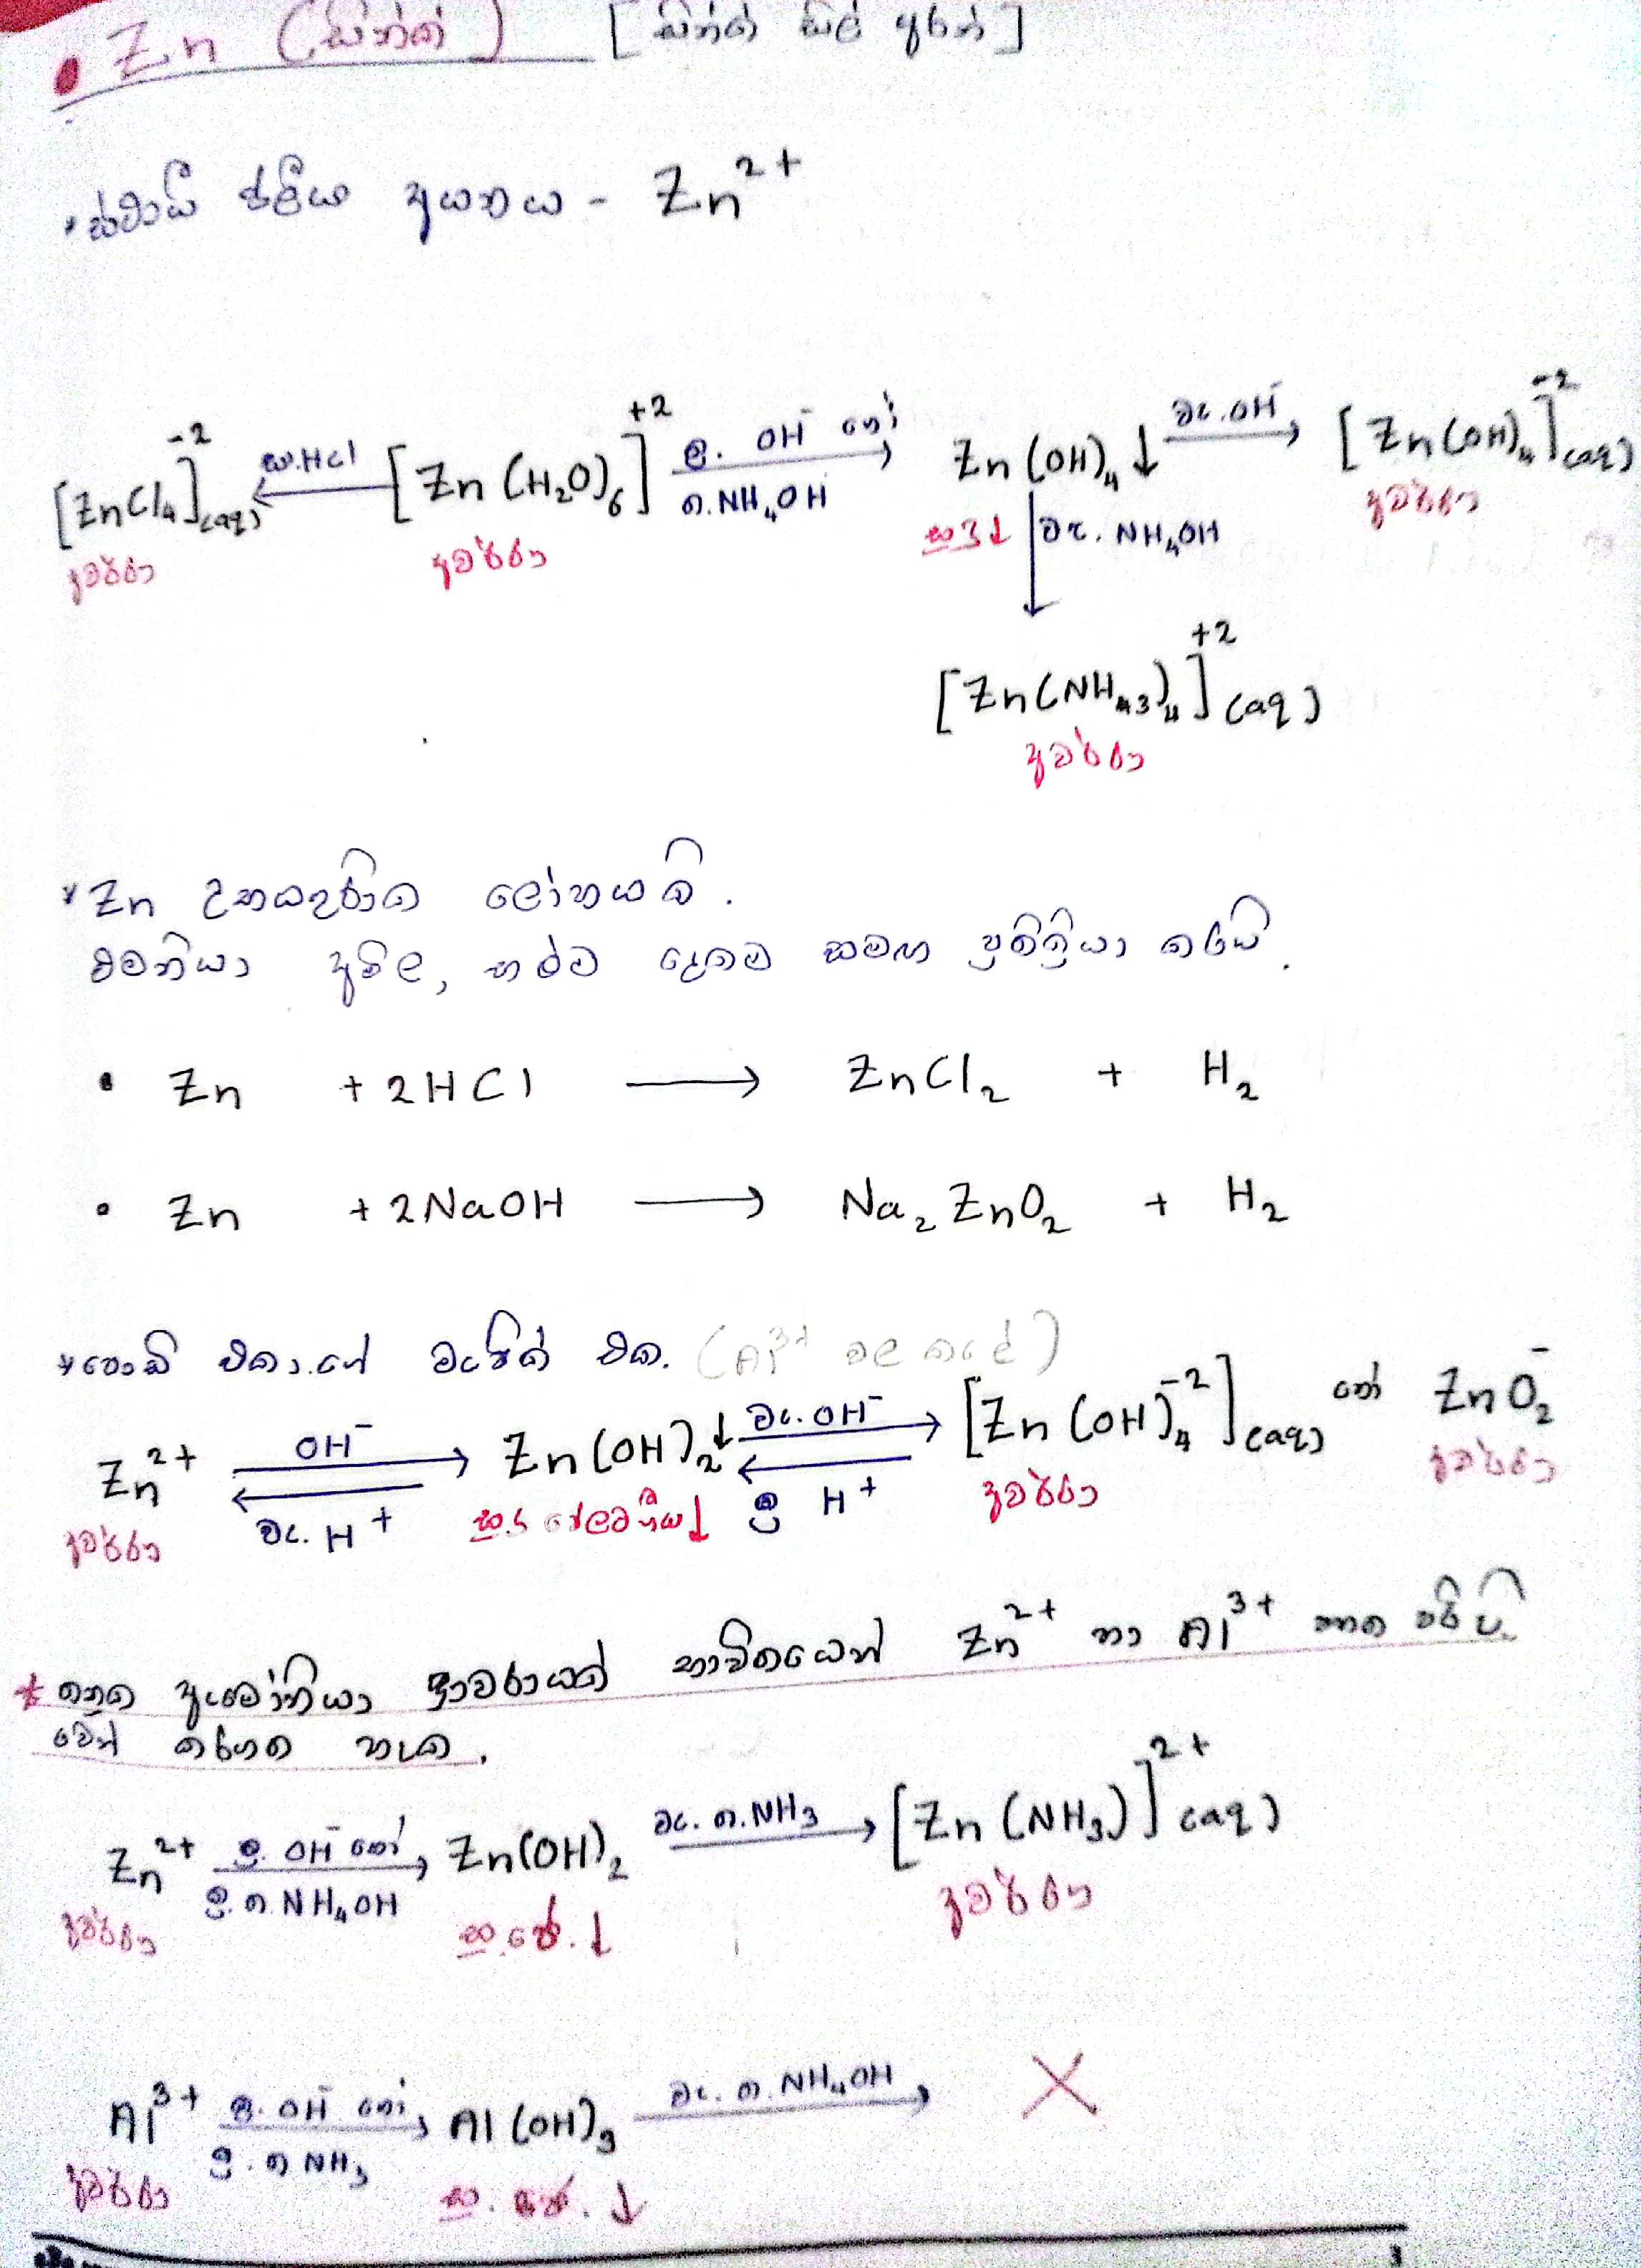 • Zn (සින්ක්) [සින්ක් සිල් අරන්]
• ස්ථායී ජලීය අයනය - Zn²⁺
[ZnCl₄]⁻²(aq) ←සා.HCl [Zn(H₂O)₆]⁺² ල. OH⁻ හෝ / ත.NH₄OH → Zn(OH)₄↓ වැ.OH⁻ → [Zn(OH)₄]⁻²(aq)
අවර්ණ අවර්ණ සුදු↓ වැ. NH₄OH අවර්ණ
[Zn(NH₃)₄]⁺²(aq)
අවර්ණ
* Zn උභයගුණික ලෝහයකි.
එමනිසා අම්ල, භෂ්ම දෙකම සමඟ ප්‍රතික්‍රියා කරයි.
• Zn + 2HCl ⟶ ZnCl₂ + H₂
• Zn + 2NaOH ⟶ Na₂ZnO₂ + H₂
* පොඩි එකාගේ මැජික් එක. (Al³⁺ වල කලේ)
Zn²⁺ OH⁻ → ← වැ. H⁺ Zn(OH)₂↓ වැ.OH⁻ → ← ල H⁺ [Zn(OH)₄⁻²](aq) හෝ ZnO₂⁻
අවර්ණ සුදු ජෙලටිනීය↓ අවර්ණ අවර්ණ
* ජලීය ඇමෝනියා ද්‍රාවණයක් භාවිතයෙන් Zn²⁺ හා Al³⁺
වෙන් කරගත හැක.
Zn²⁺ ල. OH⁻ හෝ / ල.ත.NH₄OH → Zn(OH)₂ වැ. ත.NH₃ → [Zn(NH₃)]²⁺(aq)
අවර්ණ සු.ජෙ.↓ අවර්ණ
Al³⁺ ල. OH⁻ හෝ / ල.ත NH₃ → Al(OH)₃ වැ. ත.NH₄OH → X
අවර්ණ සු.ජෙ.↓